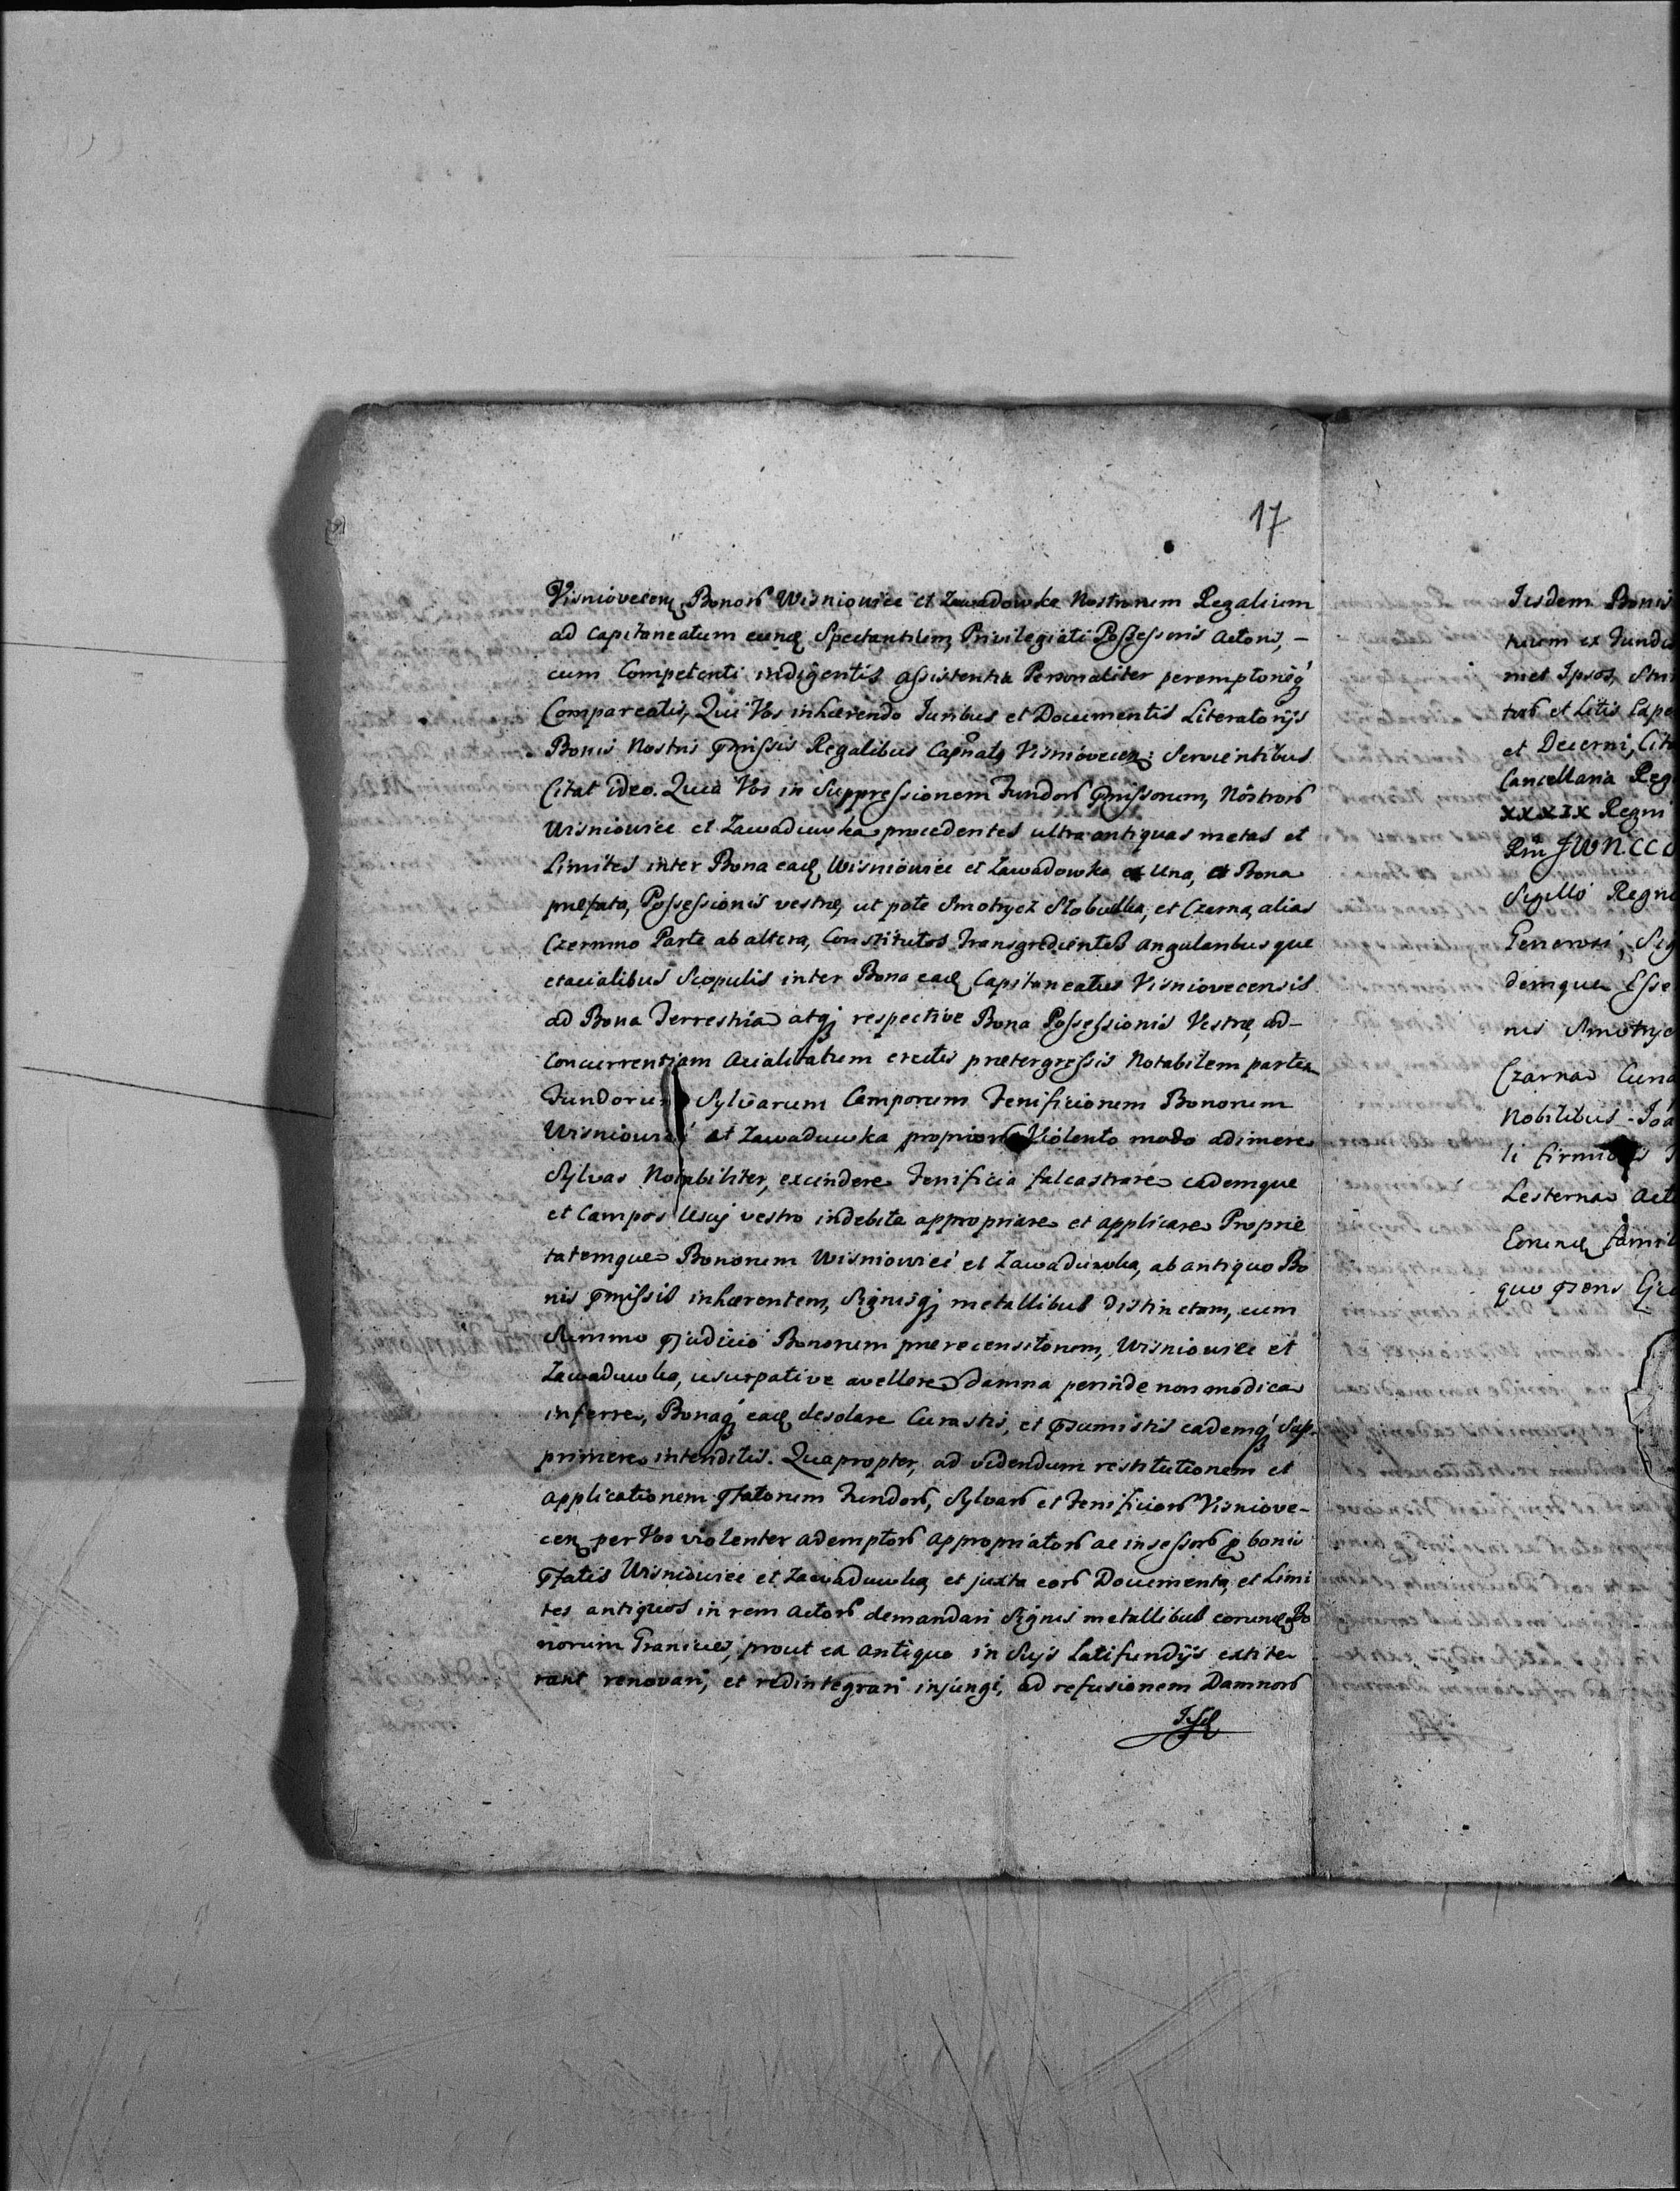 17
Visniovecens Bonor Wisniowiec et Zawadowka Nostrorum Regalium
ad Capitaneatum eund Spectantium, Privilegiati Possessoris Actoris, -
cum Competenti indigentis assistentia Personaliter peremptorieq
Compareatis, Qui Vos inhærendo Juribus et Documentis Literatorijs
Bonis Nostris pmissis Regalibus Capnats Visniovecen: Servientibus
Citat ideo. Quia Vos in Suppressionem Fundor pmissorum, Nostror
Wisniowiec et Zawaduwka procedentes ultra antiquas metas et
Limites inter Bona ead Wisniowiec et Zawadowka ex Una, et Bona
præfata, Possessionis vestræ, ut pote Smotrycz Slobudka, et Czarna, alias
Czernino Parte ab altera, Constitutos Transgredientes angularibus que
etacialibus Scopulis inter Bona ead Capitaneatus Visniovecensis
ad Bona Terrestria atq respective Bona Possessionis Vestræ, ad-
Concurrentiam Acialitatum erectis prætergressis Notabilem partem
Fundorum Sylvarum Camporum Fenificiorum Bonorum
Wisniowiec et Zawaduwka proprior Violento modo adimere
Sylvas Notabiliter, excindere Fenificia falcastrare eademque
et Campos Usuj vestro indebite appropriare et applicare Proprie
tatemque Bonorum Wisniowiec et Zawaduwka, ab antiquo Bo
nis pmissis inhærentem, Signisq metallibus Distinctam, cum
Summo pjudicio Bonorum prærecensitorum, Wisniowiec et
Zawaduwka, usurpative avellere Damna perinde non modica
inferre, Bonaq ead desolare Curastis, et psumistis eademq Sup-
primere intenditis. Quapropter, ad videndum restitutionem et
Applicationem pfatorum Fundor, Sylvar et Fenificior Visniove-
cen per Vos violenter ademptor appropriator ac insessor p bonis
pfatis Wisniowiec et Zawaduwka, et juxta eor Documenta, et Limi
tes antiquos in rem Actor demandari Signis metallibus eorund Bo
norum Granicies, prout ex antiquo in Suis Latifundijs extite
rant renovari, et redintegrari injungi, ad refusionem Damnor
Iisd
Iisdem Bonis
tuum ex Fund
met Ipsos,
et Litis
et Decerni,
Cancellaria Reg
XXXIX Regni
Sigillo Regni
Generosi,
demque Esse
nis Smotryc
Czarna
Nobilibus
Lesterna Act
Eorund famil
quo psens